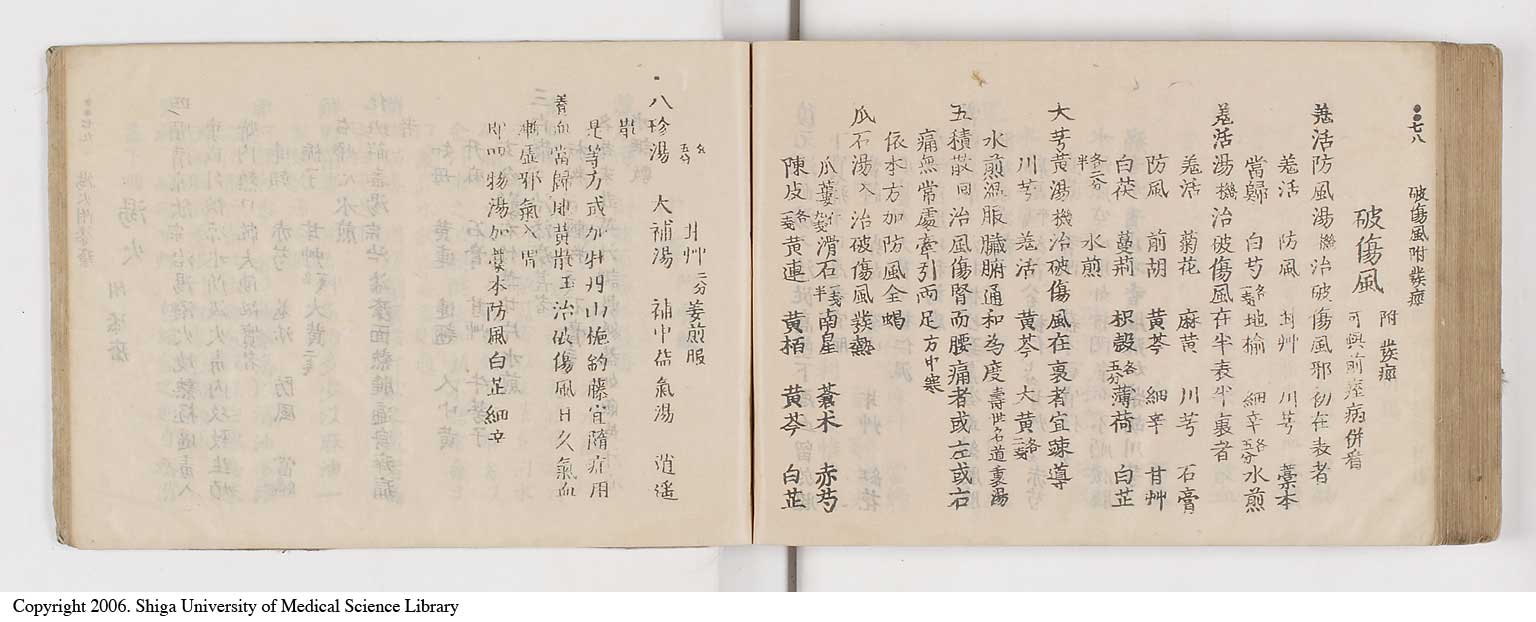 七八
破傷風附發痙
破傷風 附 發痙 可與前痙病併看
羗活防風湯機治破傷風邪初在表者
羗活 防風 甘艸 川芎 藁本
當歸 白芍各一戔 地榆 細辛各五分 水煎
羗活湯機治破傷風在半表半裏者
羗活 菊花 麻黄 川芎 石膏
防風 前胡 黄芩 細辛 甘艸
白茯 蔓荊 枳殼各五分 薄荷 白芷
各二分半 水煎
大芎黄湯機治破傷風在裏者宜踈導
川芎 羗活 黄芩 大黄各二戔
水煎温服臟腑通和為度壽世名道裏湯
五積散回治風傷腎而腰痛者或左或右
痛無常處牽引两足方中寒
依本方加防風全蝎
瓜石湯入治破傷風發熱
瓜蔞 滑石半戔 南星 蒼术 赤芍
陳皮各一戔 黄連 黄栢 黄芩 白芷
各五分 甘艸二分 姜煎服
八珍湯 大補湯 補中益氣湯 逍遙
散
是等方或加牡丹山梔鈎藤宜隨症用
養血當歸地黄散玉治破傷風日久氣血
漸虛邪氣入胃
即四物湯加藁本防風白芷細辛
Copyright 2006. Shiga University of Medical Science Library